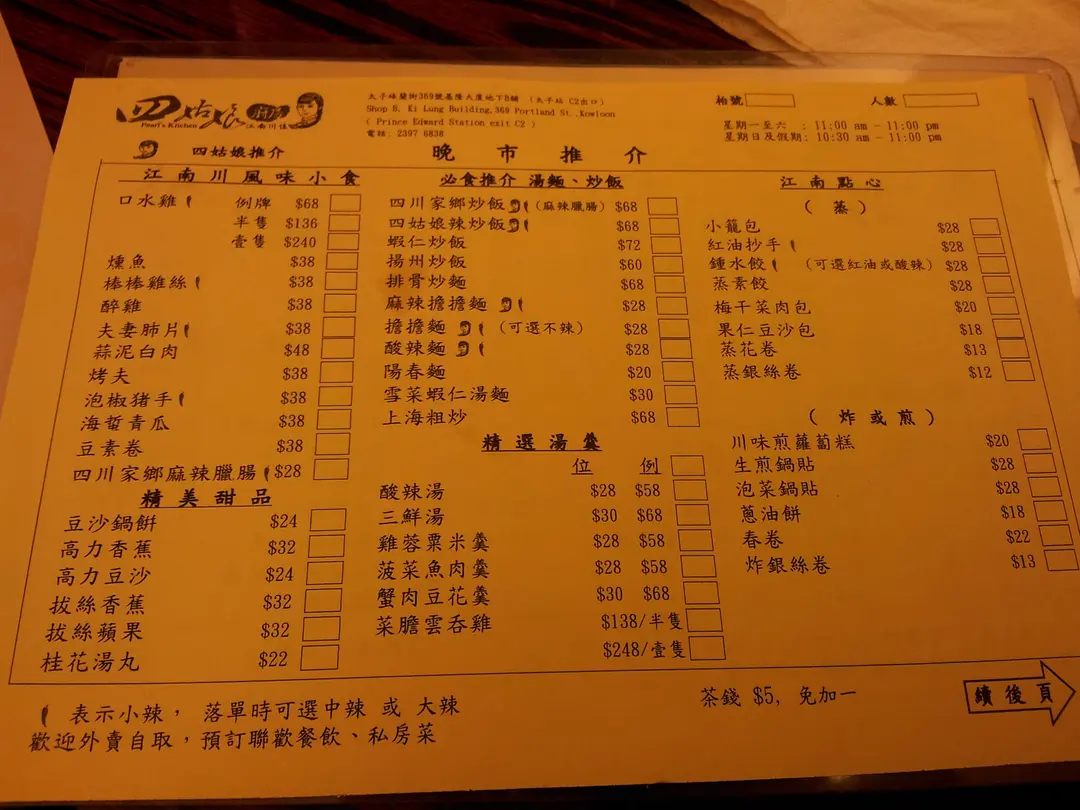 四姑娘
Pearl's Kitchen 江南川佳
太子砵蘭街369號基隆大廈地下B舖 (太子站 C2出口)
Shop B, Ki Lung Building,369 Portland St.,Kowloon
( Prince Edward Station exit C2 )
電話: 2397 6838
枱號 人數
星期一至六 : 11:00 am - 11:00 pm
星期日及假期: 10:30 am - 11:00 pm
四姑娘推介 晚市推介
江南川風味小食
口水雞 例牌 $68
半隻 $136
壹隻 $240
燻魚 $38
棒棒雞絲 $38
醉雞 $38
夫妻肺片 $38
蒜泥白肉 $48
烤夫 $38
泡椒猪手 $38
海蜇青瓜 $38
豆素卷 $38
四川家鄉麻辣臘腸 $28
精美甜品
豆沙鍋餅 $24
高力香蕉 $32
高力豆沙 $24
拔絲香蕉 $32
拔絲蘋果 $32
桂花湯丸 $22
必食推介 湯麵、炒飯
四川家鄉炒飯 (麻辣臘腸) $68
四姑娘辣炒飯 $68
蝦仁炒飯 $72
揚州炒飯 $60
排骨炒麵 $68
麻辣擔擔麵 $28
擔擔麵 (可選不辣) $28
酸辣麵 $28
陽春麵 $20
雪菜蝦仁湯麵 $30
上海粗炒 $68
精選湯羹
位 例
酸辣湯 $28 $58
三鮮湯 $30 $68
雞蓉粟米羹 $28 $58
菠菜魚肉羹 $28 $58
蟹肉豆花羹 $30 $68
菜膽雲吞雞 $138/半隻
$248/壹隻
江南點心
(蒸)
小籠包 $28
紅油抄手 $28
鍾水餃 (可選紅油或酸辣) $28
蒸素餃 $28
梅干菜肉包 $20
果仁豆沙包 $18
蒸花卷 $13
蒸銀絲卷 $12
(炸或煎)
川味煎蘿蔔糕 $20
生煎鍋貼 $28
泡菜鍋貼 $28
蔥油餅 $18
春卷 $22
炸銀絲卷 $13
表示小辣, 落單時可選中辣 或 大辣
歡迎外賣自取,預訂聯歡餐飲、私房菜
茶錢 $5, 免加一
續後頁